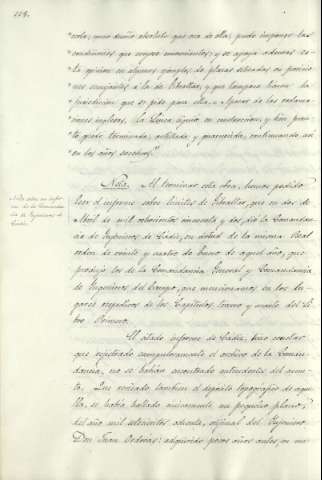 "cerla, como dueño absoluto que era de ella, pudo imponer las
"condiciones que creyese convenientes; y se apoya ademas es-
"ta opinion en algunos ejemplos de plazas situadas en posicio-
"nes semejantes á la de Gibraltar, y que tampoco tienen la
"jurisdiccion que se pide para ella. Apesar de las reclama-
"ciones inglesas, la Linea siguió en construccion, y bien pron-
"to quedó terminada, artillada y guarnecida, continuando asi
"en los años sucesivos."
Nota. Al terminar esta obra, hemos podido
leer el informe sobre límites de Gibraltar, que en dos de
Abril de mil ochocientos cincuenta y dos, dió la Comandan-
cia de Ingenieros de Cádiz, en virtud de la misma Real
orden de veinte y cuatro de Enero de aquel año, que
produjo los de la Comandancia General y Comandancia
de Ingenieros del Campo, que mencionamos en los lu-
gares respectivos de los Capítulos, tercero y cuarto del Li-
bro Primero.
Nota sobre un infor-
me de la Comandan-
cia de Ingenieros de
Cádiz.
El citado informe de Cádiz, hace constar
que registrado escrupulosamente el archivo de la Coman-
dancia, no se habian encontrado antecedentes del asun-
to. Que revisado, tambien el depósito topográfico de aque-
lla, se habia hallado únicamente, un pequeño plano,
del año mil setecientos ochenta, original del Ingeniero
Don Juan adquirido pocos años antes, en una